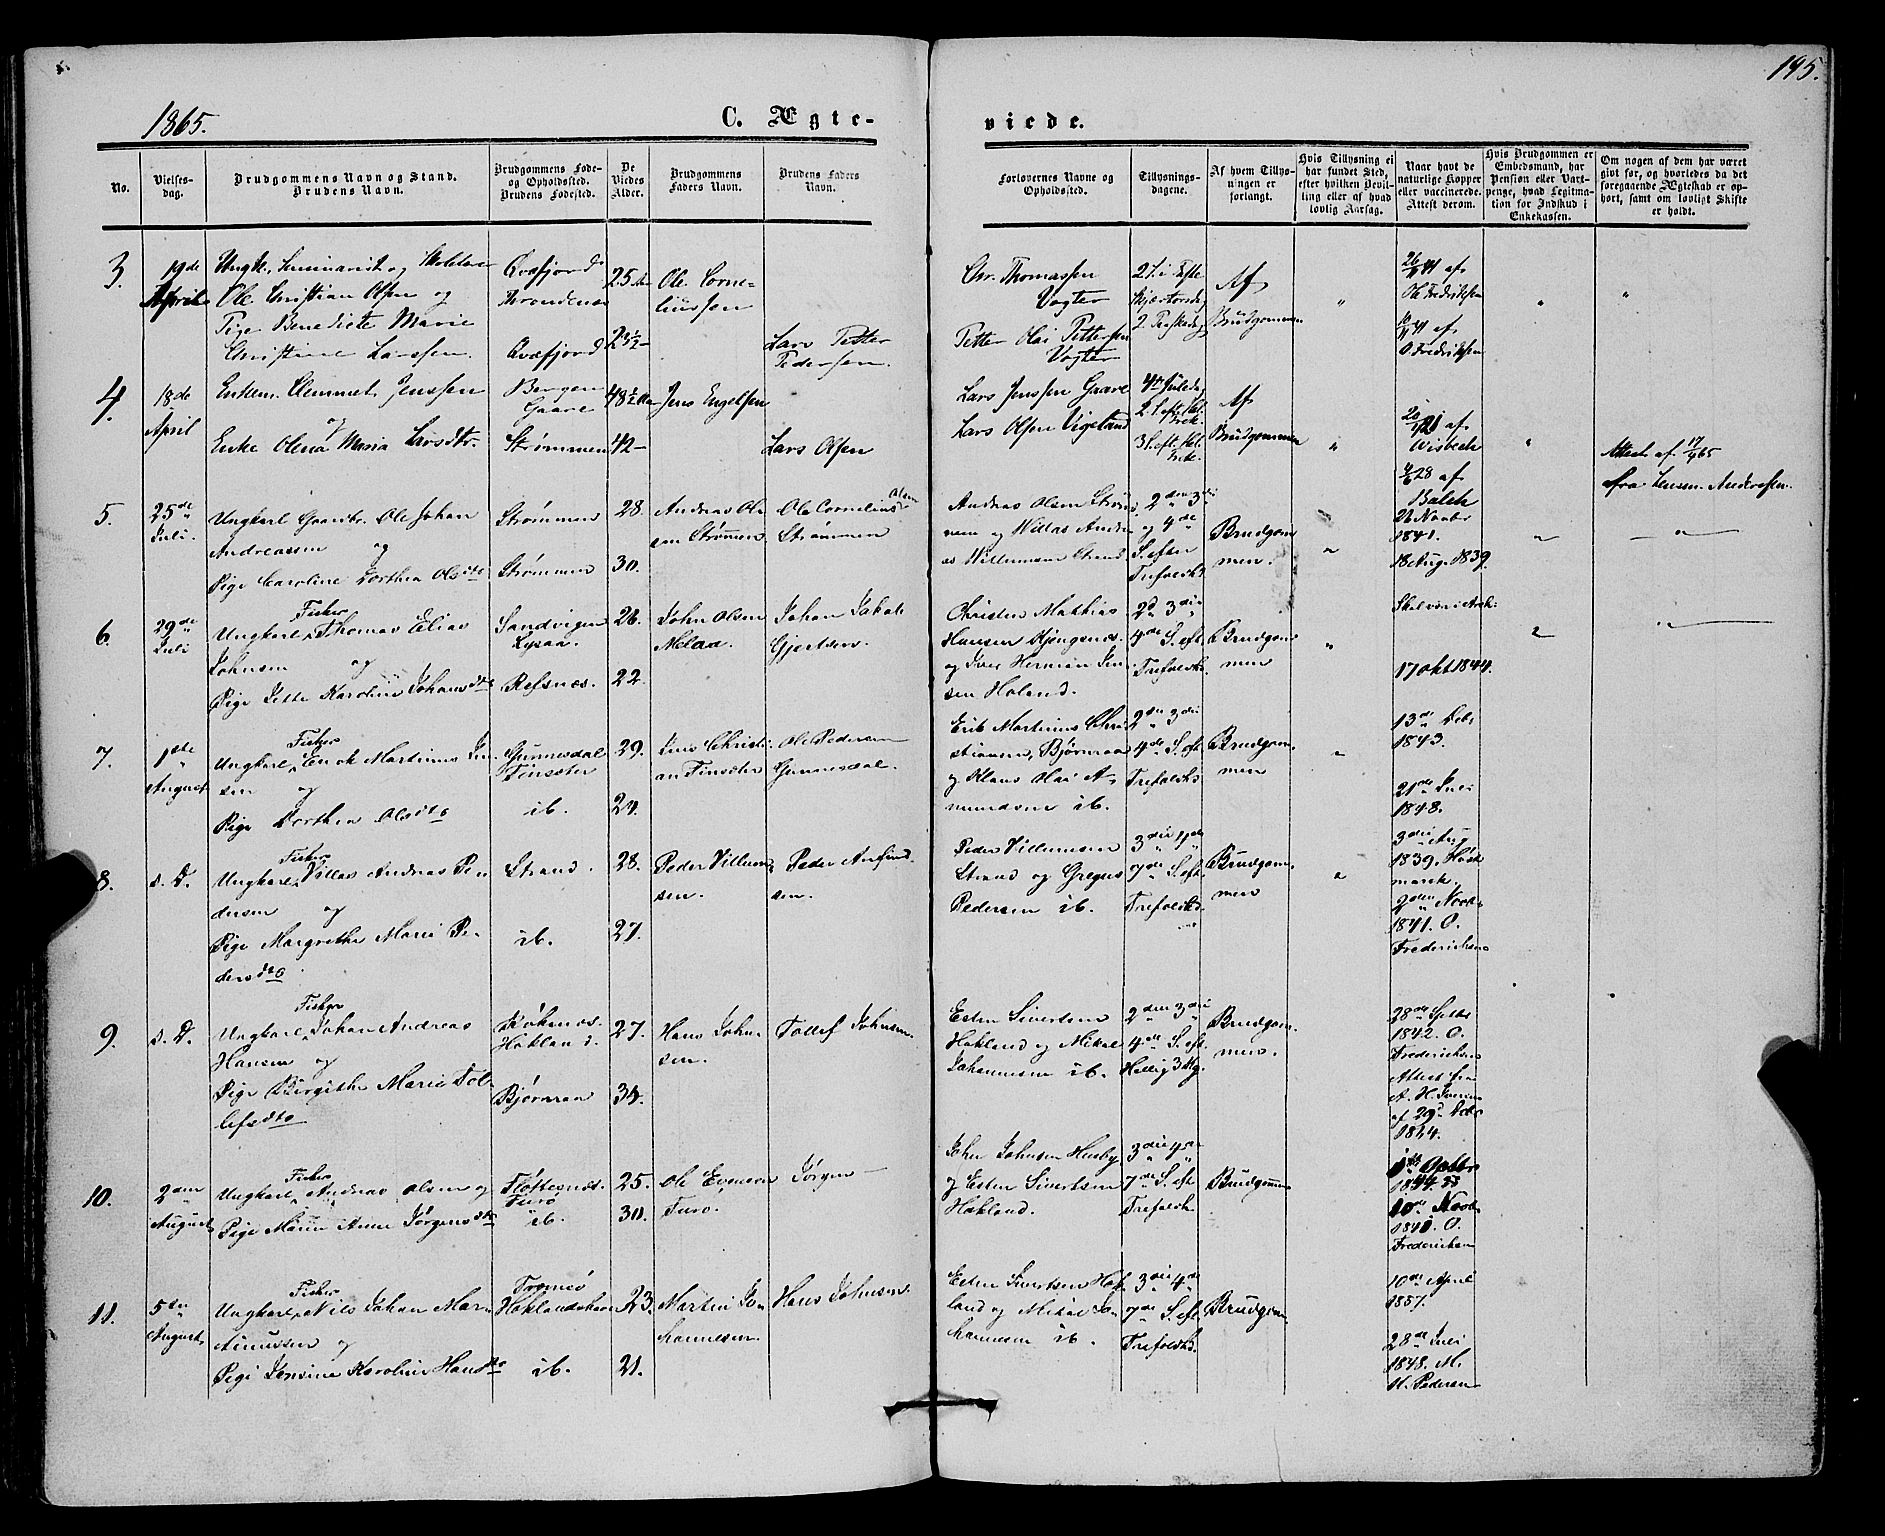 195.
1865.
C. Ægte-
viede.
No.
Vielses-
dag.
Brudgommens Navn og Stand.
Brudens Navn.
Brudgommens Føde-
og Opholdssted.
Brudens Fødested.
De
Viedes
Alder.
Brudgommens
Faders Navn.
Brudens Faders
Navn.
Forlovernes Navne og
Opholdssted.
Tillysnings-
dagene.
Af hvem Tillys-
ningen er
forlangt.
Hvis Tillysning ei
har fundet Sted,
efter hvilken Bevil-
ling eller af hvad
lovlig Aarsag.
Naar havt de
naturlige Kopper
eller vaccinerede.
Attest derom.
Hvis Brudgommen er
Embedsmand, har
Pension eller Vart-
penge, hvad Legitma-
tion for Indskud i
Enkekassen.
Om nogen af dem har været
givt før, og hvorledes da det
foregaaende Ægteskab er op-
hørt, samt om lovligt Skifte
er holdt.
3.
19de
April
Ungk., Seminarist og
Ole Christian Olsen og
Pige Benedicte Marie
Christine Larssen.
Qvæfjord
Throndenes
Qvæfjord
25
23½
Ole Corne-
liussen
Lars Petter
Pedersen.
Chr. Thomassen
Vogter
Petter Olai Pettersen
Vogter
Af
Brudgommen
26/9 41 af
Ole Fredriksen
41 af
O Fredriksen
4.
18de
April
Enkem. Clemmet Jenssen
og
Enke Olena Maria Larsdtr.
Bergen
Gaare
Strømmen
48½
42
Jens Engelsen
Lars Olsen
Lars Jenssen Gaare
Lars Olsen Vigeland
Af
Brudgommen
21 af
Wisbech
28 af
Balch
Attest af 17/4 65
fra Lensm. Andersen.
5.
25de
Juli.
Ungkarl Gaardbr. Ole Johan
Andreassen og
Pige Caroline Dorthea Olsdtr
Strømmen
Strømmen
28.
30.
Andreas Ol-
sen Strømen
Ole Cornelius Olsen
Strømmen
Andreas Olsen Strøm-
men og Villas Andre-
as Willumsen Strand
2den 3die
og 4de
S. efter
Trefoldhd.
Brudgom
men.
26 Novbr
1841.
18 Aug. 1839.
6.
29de
Juli
Fisker
Ungkarl, Thomas Elias
Johnsen og
Pige Jette Karoline Johansdtr
Sandvigen
Lysaa.
Refsnæs.
26.
22.
John Olsen
Melaa.
Johan Jakob
Gjertsen.
Christen Mathias
Hansen Kjøngsnes.
og Iver Herman Jen-
sen Holand.
2d 3die
4de S. eft.
Trefoldhd.
Brudgom
men
17 Okt 1844.
7.
1ste
August
Fisker
Ungkarl, Enok Martinus Jen-
sen og
Pige Dorthea Olsdtr
Gunnesdal
Finsæter
ib.
29.
24.
Jens Christi-
an Finsæter
Ole Pedersen
Gunnesdal.
Erik Martinus Chri-
stiansen, Bjørnraa
og Klaus Olai A-
mundsen ib.
2den 3die
4de S. eft
Trefoldhd
Brudgom
men
13de Debr
1843.
21de Juli
1848.
8.
s. D.
Fisker
Ungkarl, Villas Andreas Pe-
dersen og
Pige Margrethe Marie Pe-
dersdtr
Strand.
ib.
28.
27.
Peder Villum-
sen.
Peder Anfind-
sen.
Peder Villumsen
Strand og Gregus
Pedersen ib.
3die 4de
7de S. eft.
Trefoldhd.
Brudgom
men
3die Aug
1839.
2den Novbr
1841. O.
Frederiksen
9.
s. D.
Fisker
Ungkarl, Johan Andreas
Hansen og
Pige Birgithe Marie Tol-
lefsdtr
Haklands.
Bjørnraa
27.
34.
Hans John-
sen.
Tollef Johnsen.
Esten Sivertsen
Hakland og Mikal
Johannesen ib.
2den 3die
4de S. eft.
Hellig 3 Kg.
Brudgom
men.
28de Septbr
1842. O.
Frederiksen
Attest fra
af 29d. Debr
10.
2den
August
Fisker
Ungkarl, Andreas Olsen og
Pige Maren Anne Jørgensdtr
ib.
25.
30.
Ole Evensen
Jørgen —
John Johnsen Husby
og Esten Sivertsen
Hakland.
3die 4de
7de S. eft
Trefoldh
Brudgommen
1844.
10de Novbr
O.
Frederiksen
11.
5te
August
Fisker
Ungkarl, Nils Johan Mar-
tinussen og
Pige Jensine Karoline Hansdtr
Tromsø
Haklandshavn
ib.
23.
21.
Martin Jo-
hannesen.
Hans Johnsen.
Esten Sivertsen Hak-
land og Mikal Jo-
hannesen ib.
3die 4de
7de S. eft.
Trefoldhd.
Brudgom
10de April
1857.
28de Juli
1848. M.
H. Pedersen